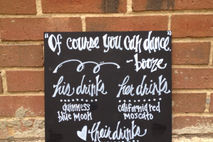 "Of course you can dance."
- booze
his drinks her drinks
guinness california red
blue moon moscato
their drinks